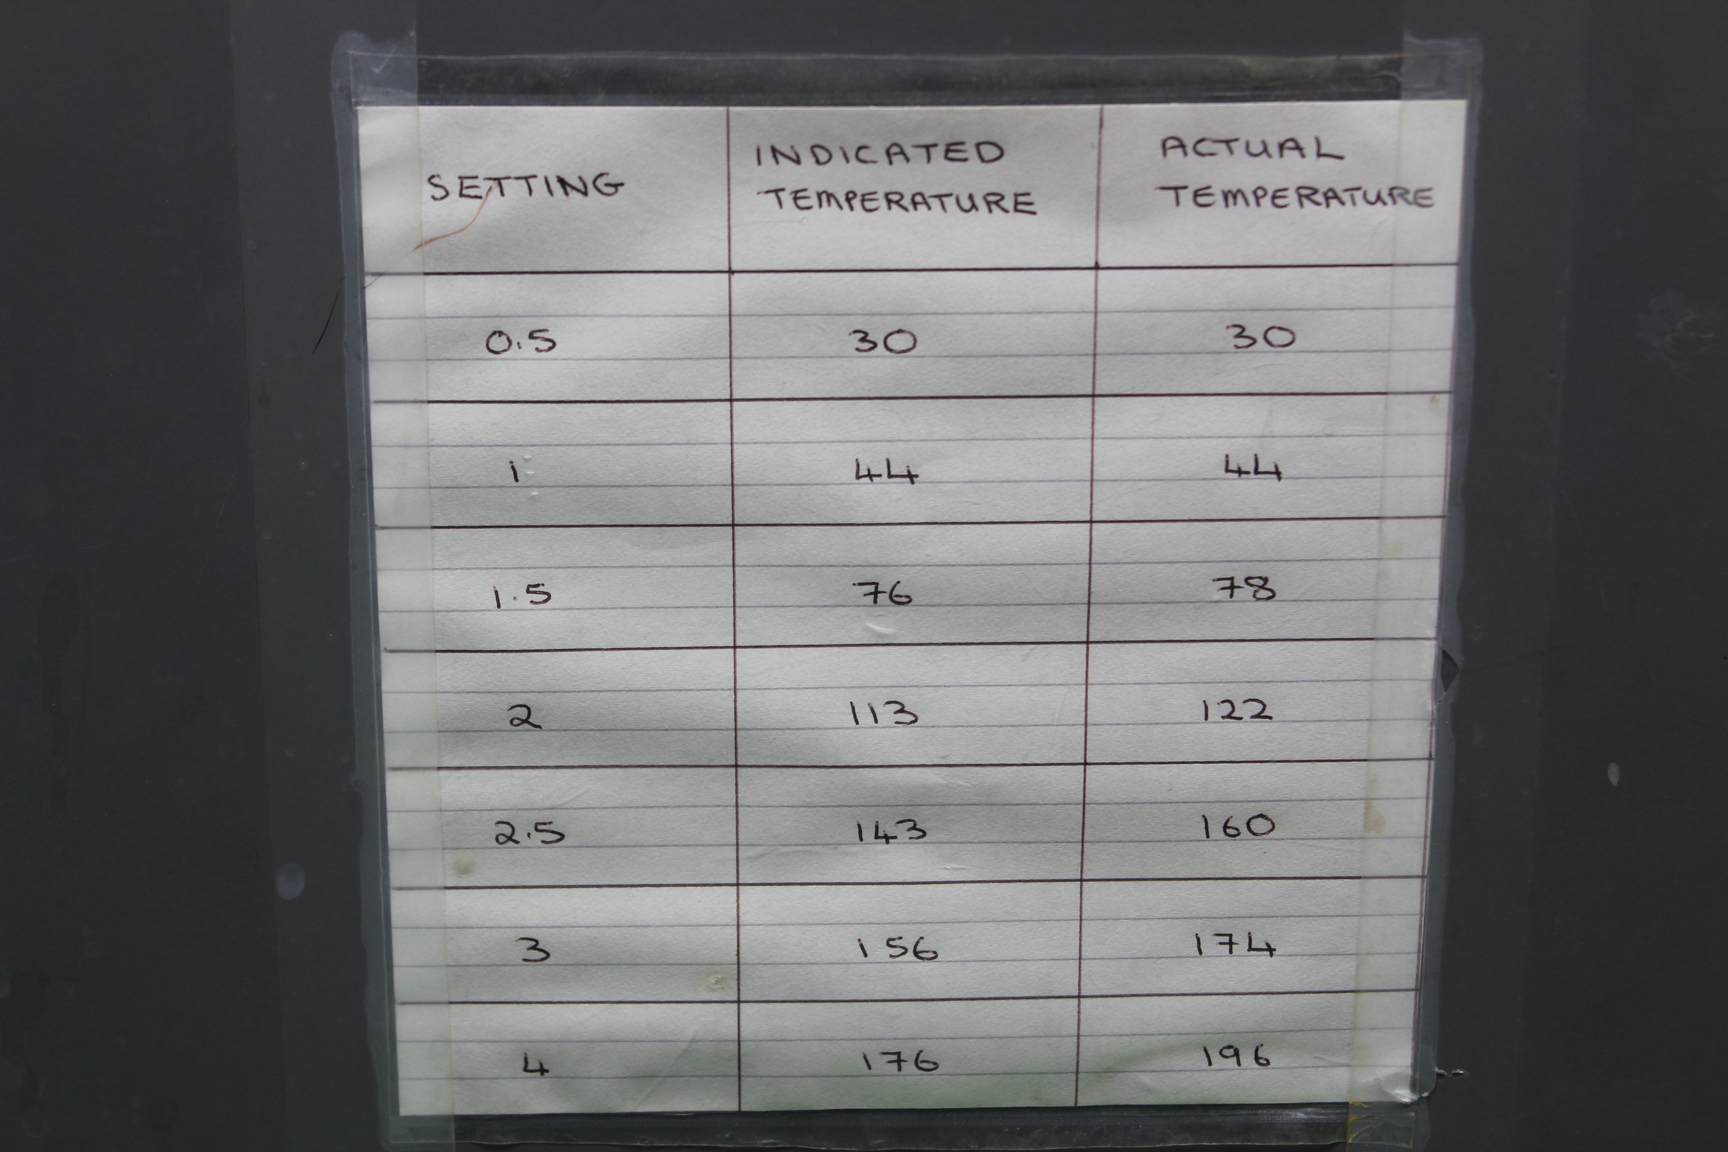 SETTING INDICATED TEMPERATURE ACTUAL TEMPERATURE
0.5 30 30
1 44 44
1.5 76 78
2 113 122
2.5 143 160
3 156 174
4 176 196